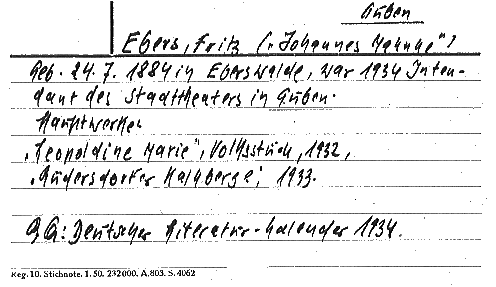 Guben
Ebers, Fritz („Johannes Mahnke")
Geb. 24.7.1884 in Eberswalde, war 1934 Inten-
dant des Stadttheaters in Guben.
Hauptwerke:
„Leopoldine Marie", Volksstück, 1932,
„Rüdersdorfer Kalkberge", 1933.
Qu: Deutscher Literatur-Kalender 1934.
Reg. 10. Stichnote. 1. 50. 232000. A.803. S. 4062